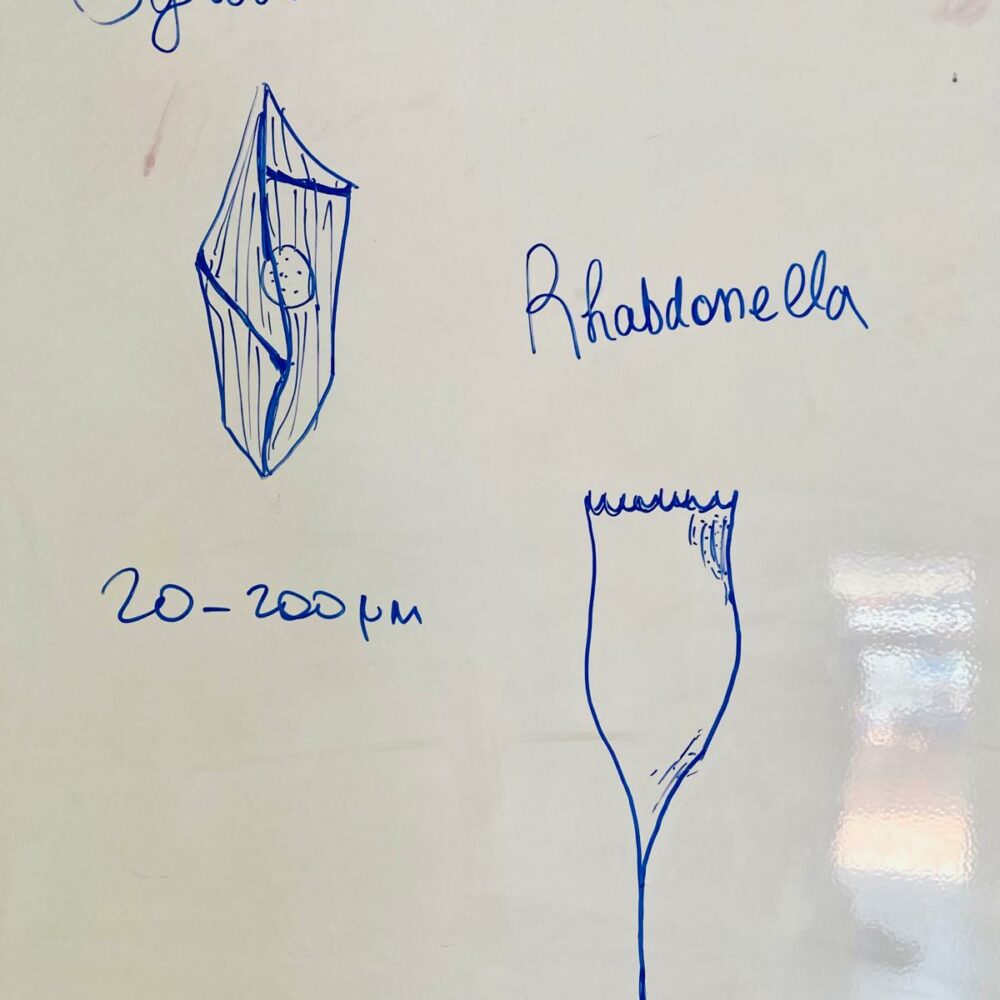 Rhabdonella
20-200 µm